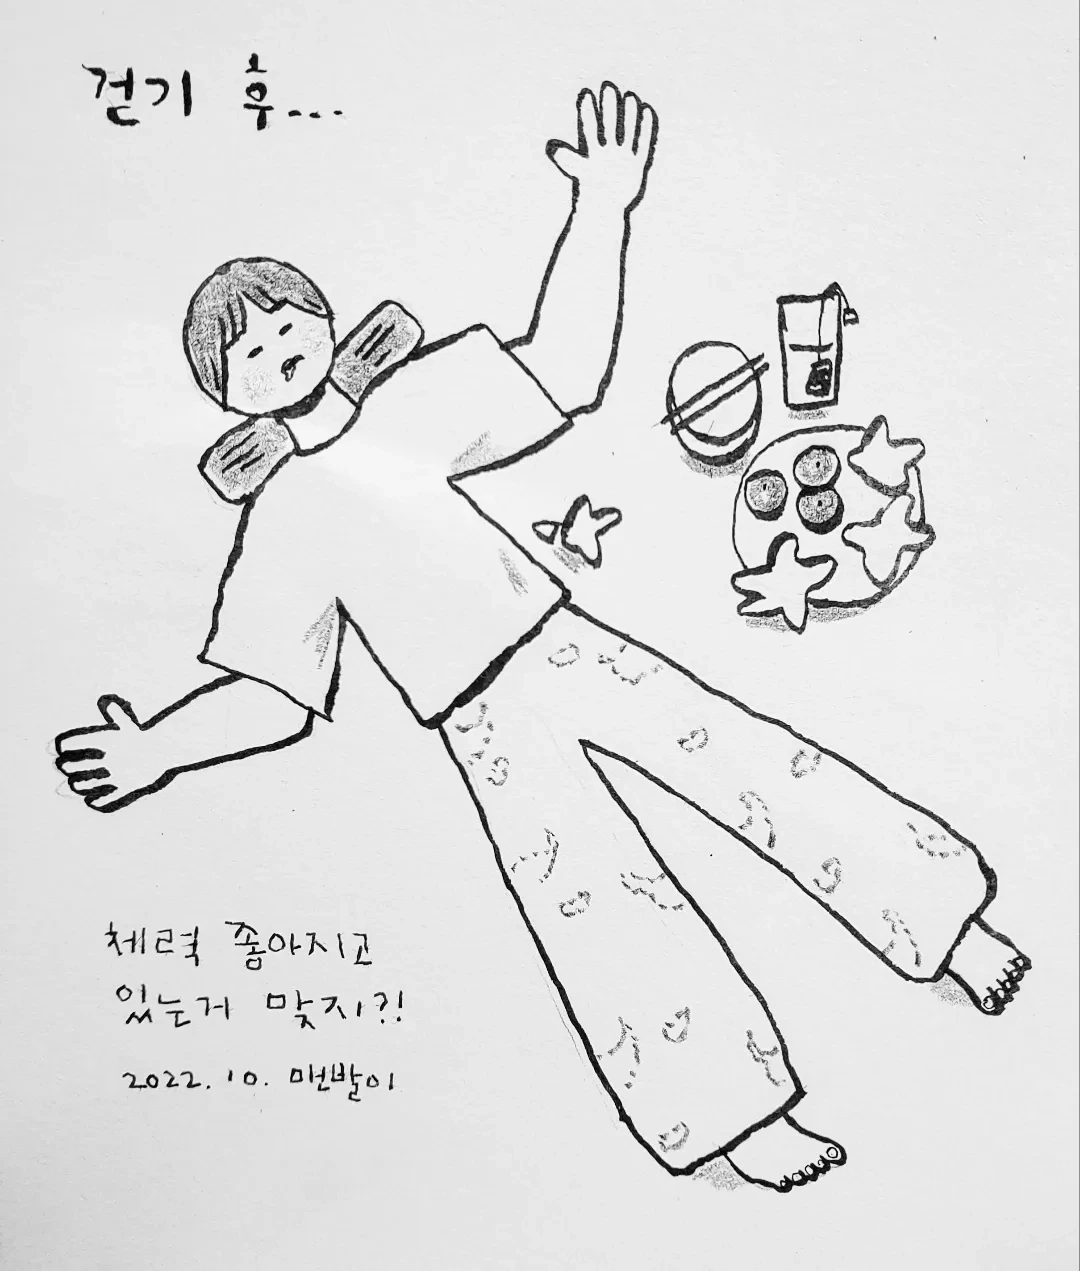 걷기 후...
체력 좋아지고
있는거 맞지?!
2022. 10. 맨발이